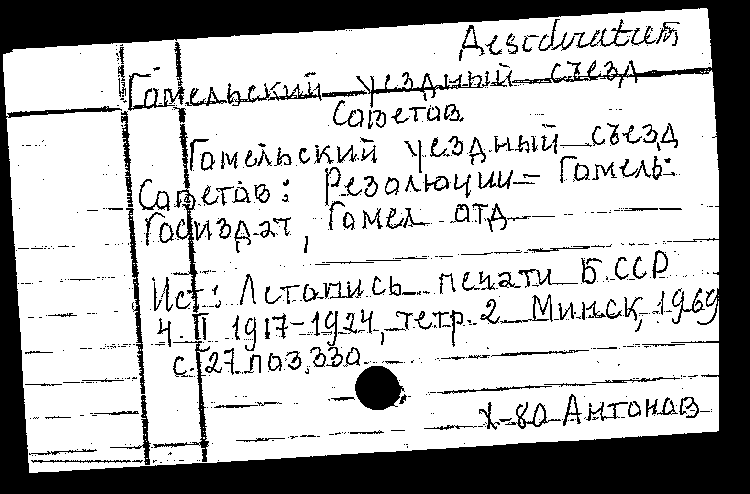 Desideratum
Гомельский уездный съезд
Советов
Гомельский уездный съезд
Советов: Резолюции – Гомель:
Госиздат, Гомел отд
Ист: Летопись печати БССР
Ч. II 1917–1924, тетр. 2 Минск, 1969
с. 27 поз. 330
X-80 Антонов